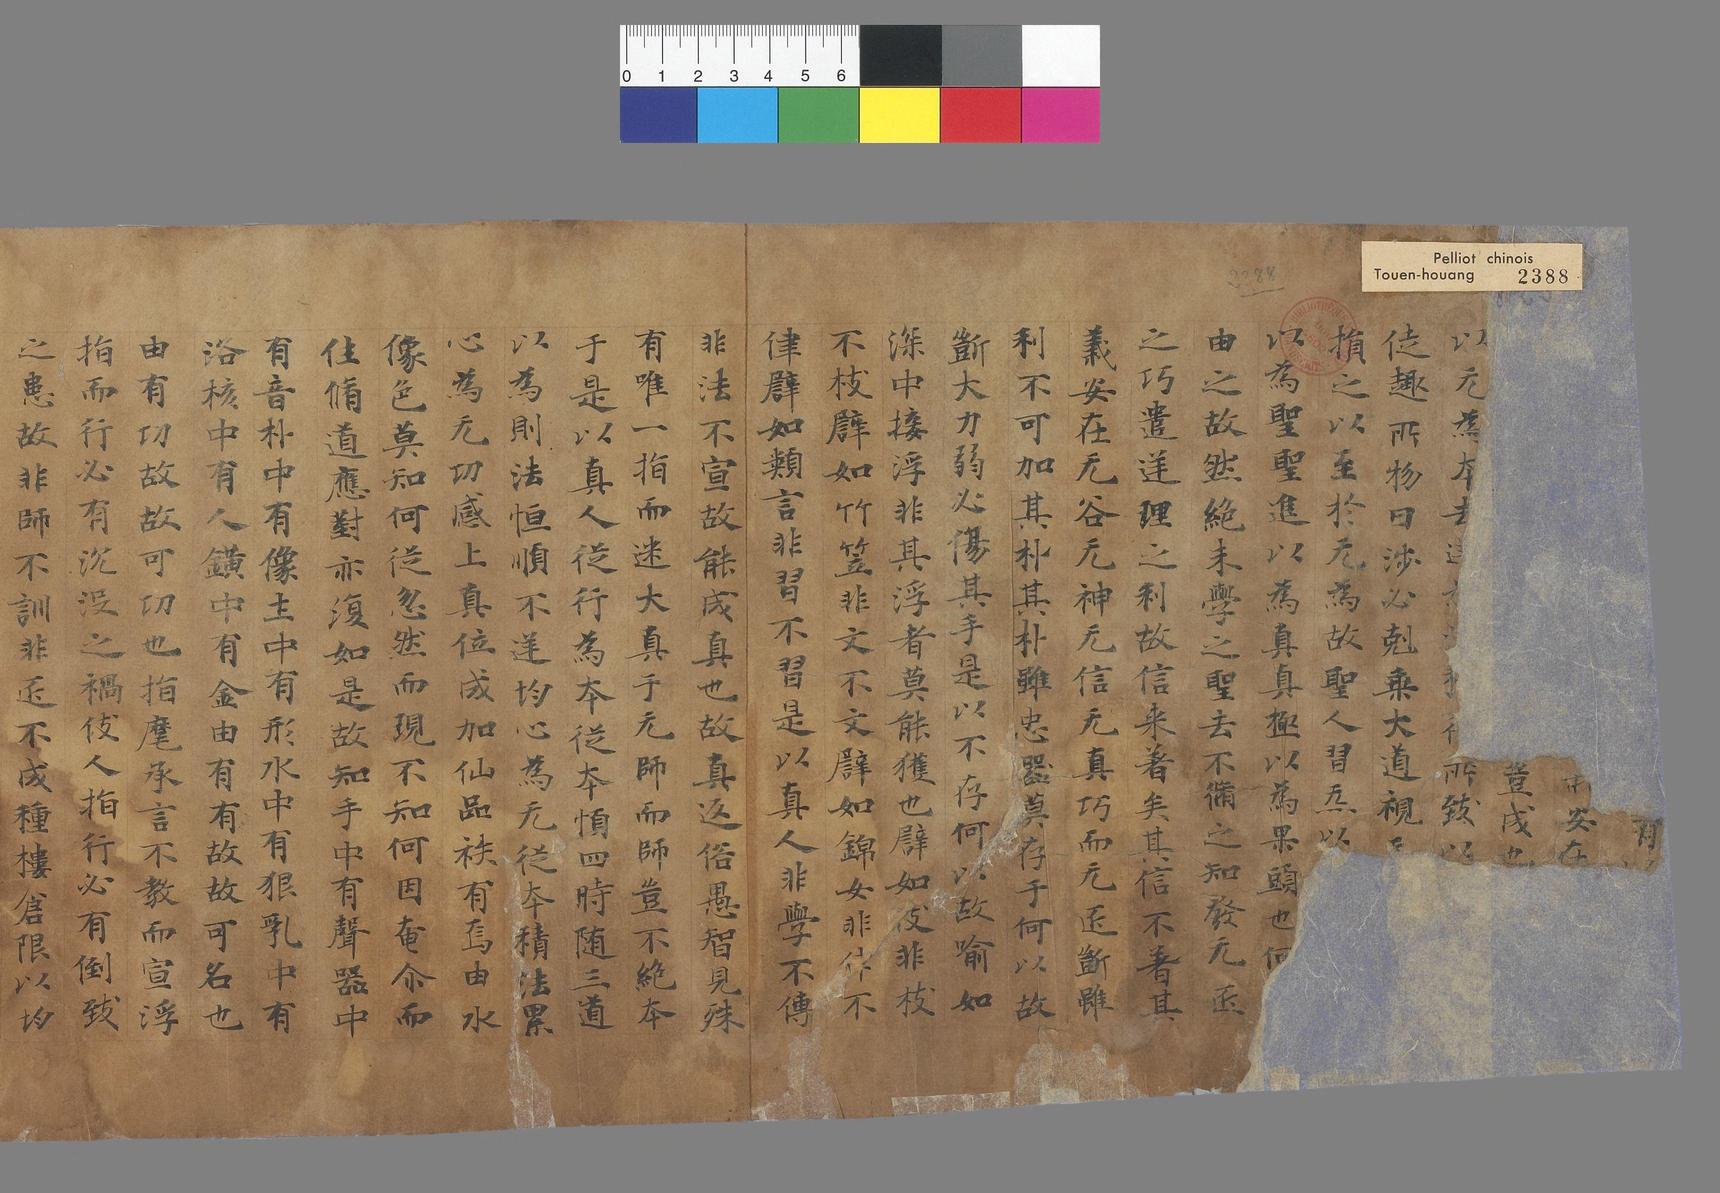 0 1 2 3 4 5 6
Pelliot chinois
Touen-houang 2388
安在
豈成也
以无為本去 所致以
徒趣所物曰涉必剋乗大道視
損之以至於无為故聖人習炁以
以為聖聖進以為真真極以為果頭也何
由之故然絶未學之聖去不備之知發无丞
之巧遣逆理之利故信来著矣其信不著其
義安在无谷无神无信无真巧而无丞斷雖
利不可加其朴其朴雖忠器莫存于何以故
斷大力弱必傷其手是以不存何以故喻如
深中接浮非其浮者莫能獲也辟如彼非枝
不枝辟如竹笠非文不文辟如錦女非作不
律辟如類言非習不習是以真人非學不傳
非法不宣故能成真也故真返俗愚智見殊
有唯一指而迷大真于无師而師豈不絶本
于是以真人從行為本從本慎四時随三道
以為則法恒順不逆均心為无從本積法累
心為无功感上真位成加仙品袟有焉由水
像色莫知何從忽然而現不知何因奄尒而
住脩道應對亦復如是故知手中有聲器中
有音朴中有像土中有形水中有狠乳中有
洛核中有人鑛中有金由有有故故可名也
由有功故故可功也指麾承言不教而宣浮
指而行必有沉没之禍伎人指行必有倒致
之患故非師不訓非丞不成種樓倉限以均